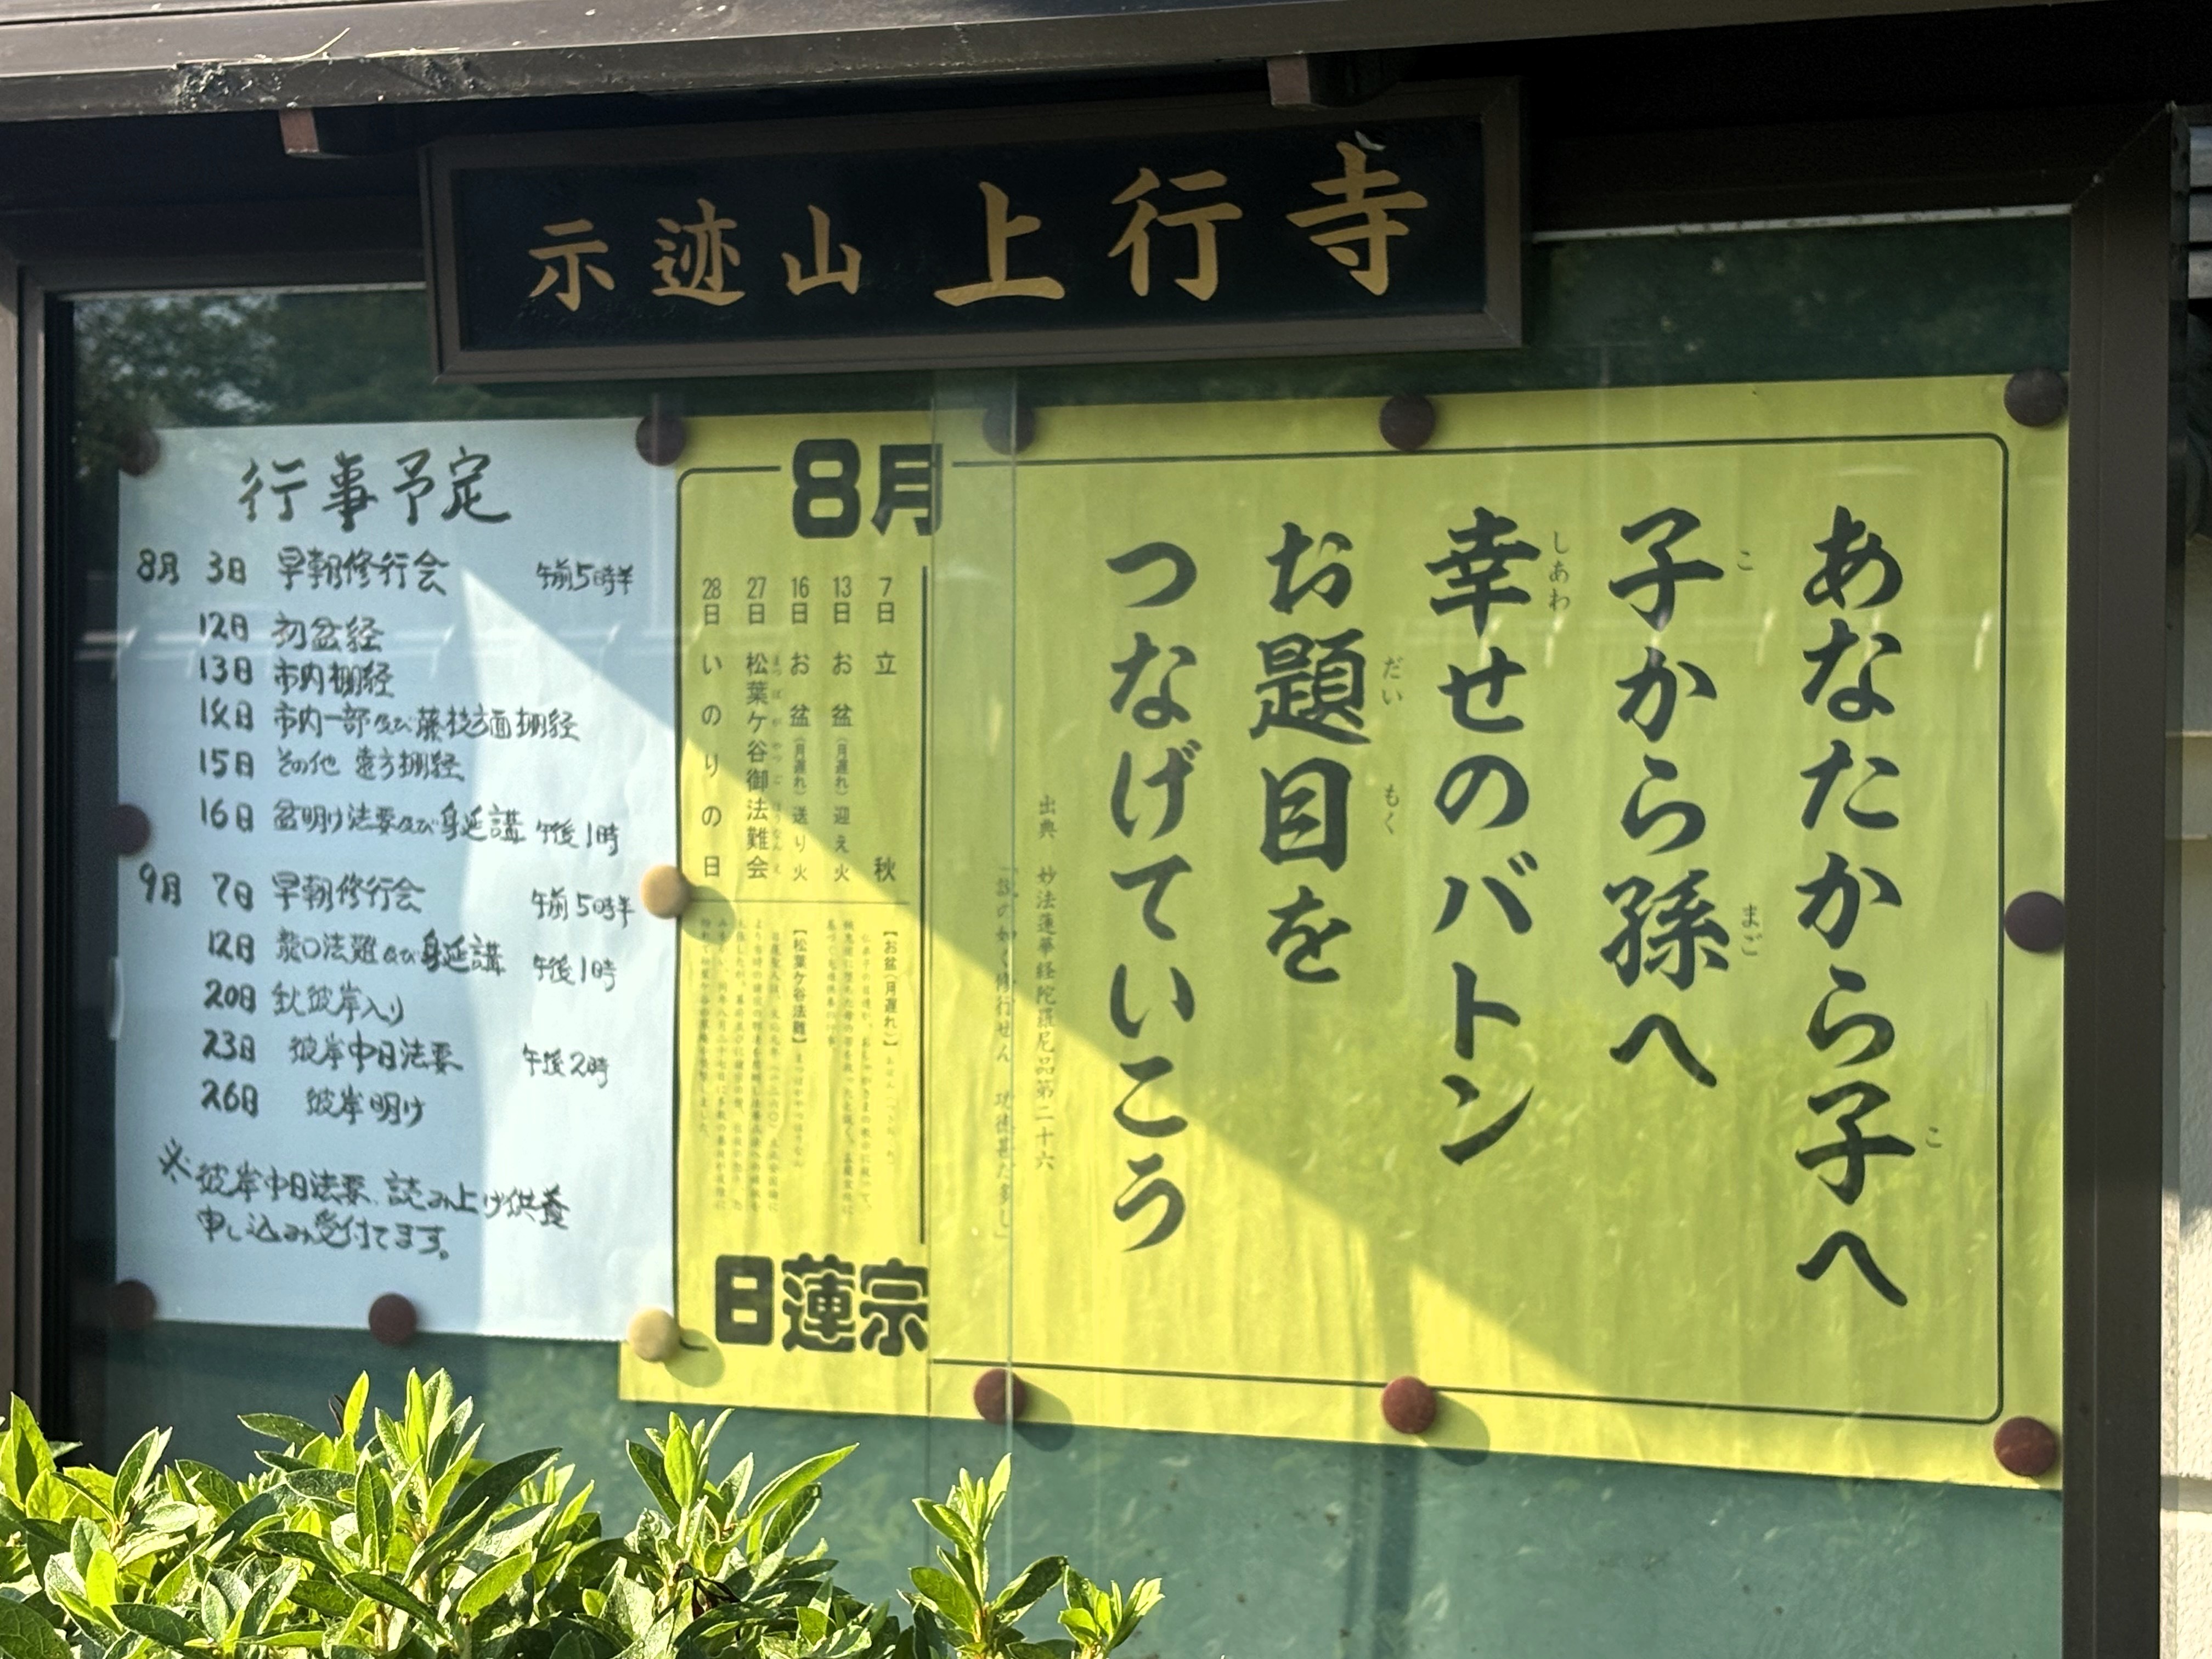 示迹山 上行寺
行事予定
8月 3日 早朝修行会 午前5時半
12日 初盆経
13日 市内棚経
14日 市内一部及び藤枝方面棚経
15日 その他 遠方棚経
16日 盆明け法要及び身延講 午後1時
9月 7日 早朝修行会 午前5時半
12日 龍口法難及び身延講 午後1時
20日 秋彼岸入り
23日 彼岸中日法要 午後2時
26日 彼岸明け
※彼岸中日法要、読み上げ供養
申し込み受付てます。
あなたから子へ
子から孫へ
幸せのバトン
お題目を
つなげていこう
出典 妙法蓮華経陀羅尼品第二十六
「説の如く修行せん 功徳甚だ多し」
8月
7日 立秋
13日 お盆(月遅れ)迎え火
16日 お盆(月遅れ)送り火
27日 松葉ケ谷御法難会
28日 いのりの日
【お盆(月遅れ)】
【松葉ケ谷法難】
日蓮宗